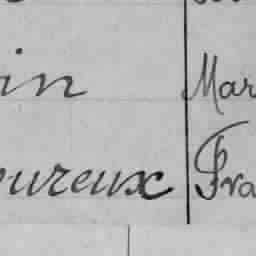 in Mar
oureux Fra